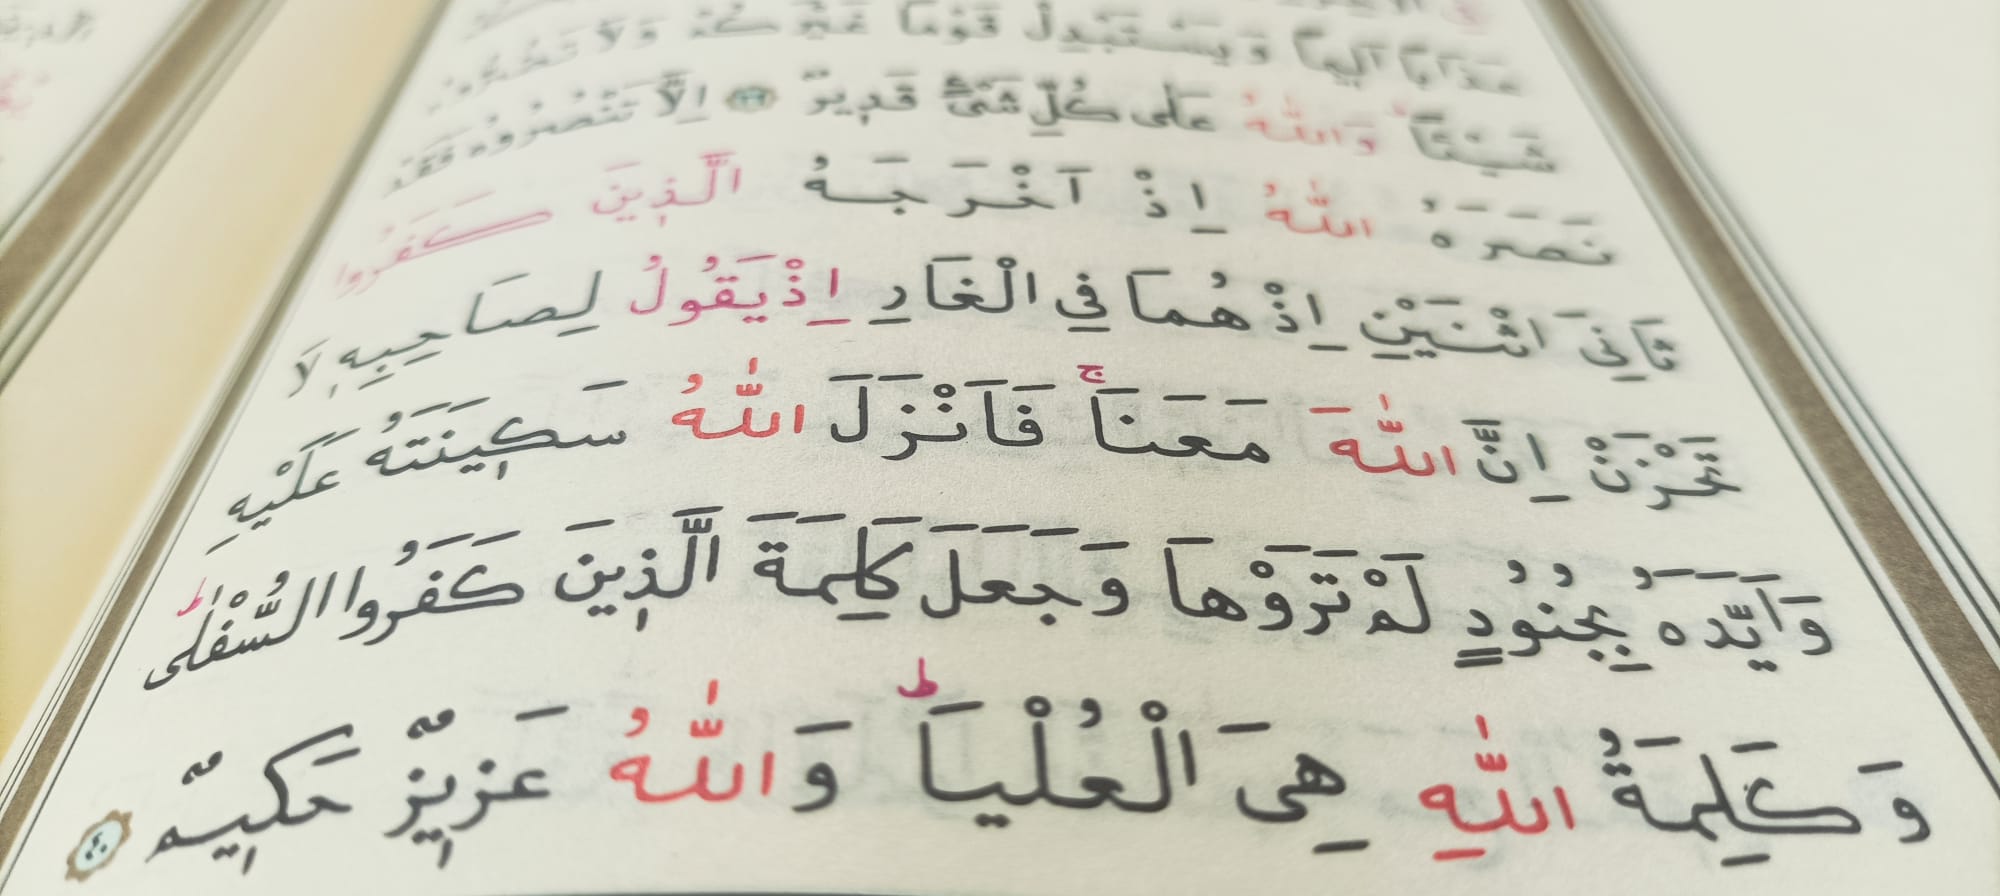 عَذَابًا اَلِيمًا وَيَسْتَبْدِلْ قَوْمًا غَيْرَكُمْ وَلَا تَضُرُّوهُ
شَيْـًٔاۜ وَاللّٰهُ عَلٰى كُلِّ شَىْءٍ قَدِيرٌ ﴿٣٩﴾ اِلَّا تَنْصُرُوهُ فَقَدْ
نَصَرَهُ اللّٰهُ اِذْ اَخْرَجَهُ الَّذِينَ كَفَرُوا
ثَانِىَ اثْنَيْنِ اِذْ هُمَا فِى الْغَارِ اِذْ يَقُولُ لِصَاحِبِهٖ لَا
تَحْزَنْ اِنَّ اللّٰهَ مَعَنَاۚ فَاَنْزَلَ اللّٰهُ سَكٖينَتَهُ عَلَيْهِ
وَاَيَّدَهُ بِجُنُودٍ لَمْ تَرَوْهَا وَجَعَلَ كَلِمَةَ الَّذٖينَ كَفَرُوا السُّفْلٰىۜ
وَكَلِمَةُ اللّٰهِ هِىَ الْعُلْيَاۜ وَاللّٰهُ عَزٖيزٌ حَكٖيمٌ ﴿٤٠﴾